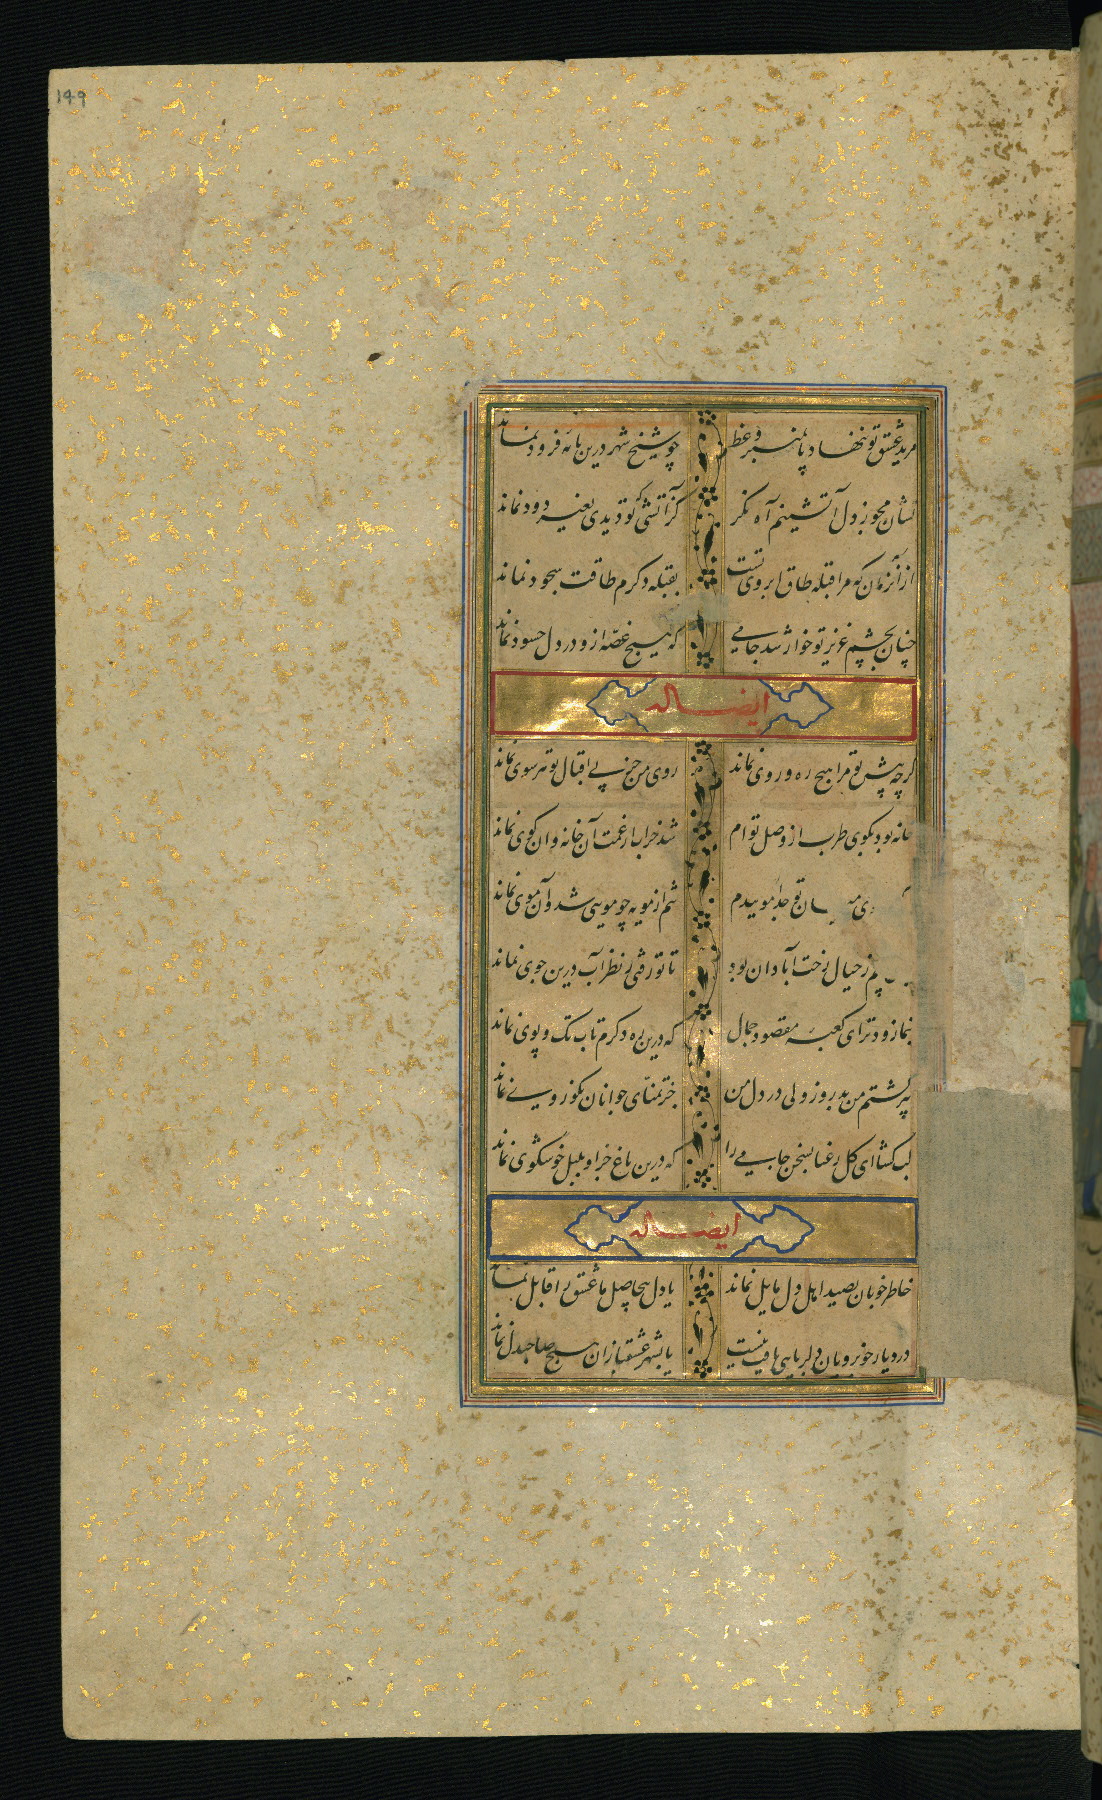 149
مرید عشق تو ننهاد پا بمنبر وعظ چو شیخ شهر درین پایه فرود نماند
نشان مجو ز دل آتشینم آه نگر کز آتشی که تو دیدی بغیر دود نماند
از آن زمان که مرا قبله طاق ابروی تست بقبله دگرم طاقت سجود نماند
چنان بچشم عزیز تو خوار شد جامی که هیچ غصه ازو در دل حسود نماند
ایضا له
گرچه پیش تو مرا هیچ ره و روی نماند روی من جز پی اقبال تو هر سوی نماند
خانه بود بکوی طرب از وصل توام شد خراب از غمت آن خانه و آن کوی نماند
تو جدا موییدم تنم از مویه چو مویی شد و آن موی نماند
ز خیال رخت آبادان بود تا تو رفتی ز نظر آب درین جوی نماند
بنما زود ترای کعبه مقصود جمال که درین ره دگرم تاب تک و پوی نماند
پیر گشتم من بد روز ولی در دل من جز تمنای جوانان نکو روی نماند
لب گشا ای گل رعنا بسخن جامی را که درین باغ جز او بلبل خوشگوی نماند
ایضا له
خاطر خوبان بصید اهل دل مایل نماند یا دل بیحاصل ما عشق را قابل نماند
در دیار خوبرویان دلربایی یافت نیست یا بشهر عشقبازان هیچ صاحبدل نماند